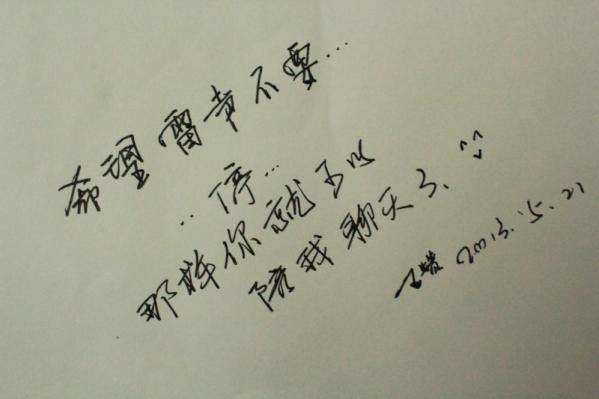 希望雷声不要…
..停…
那样你就可以
陪我聊天了. ^^
2013.5.21